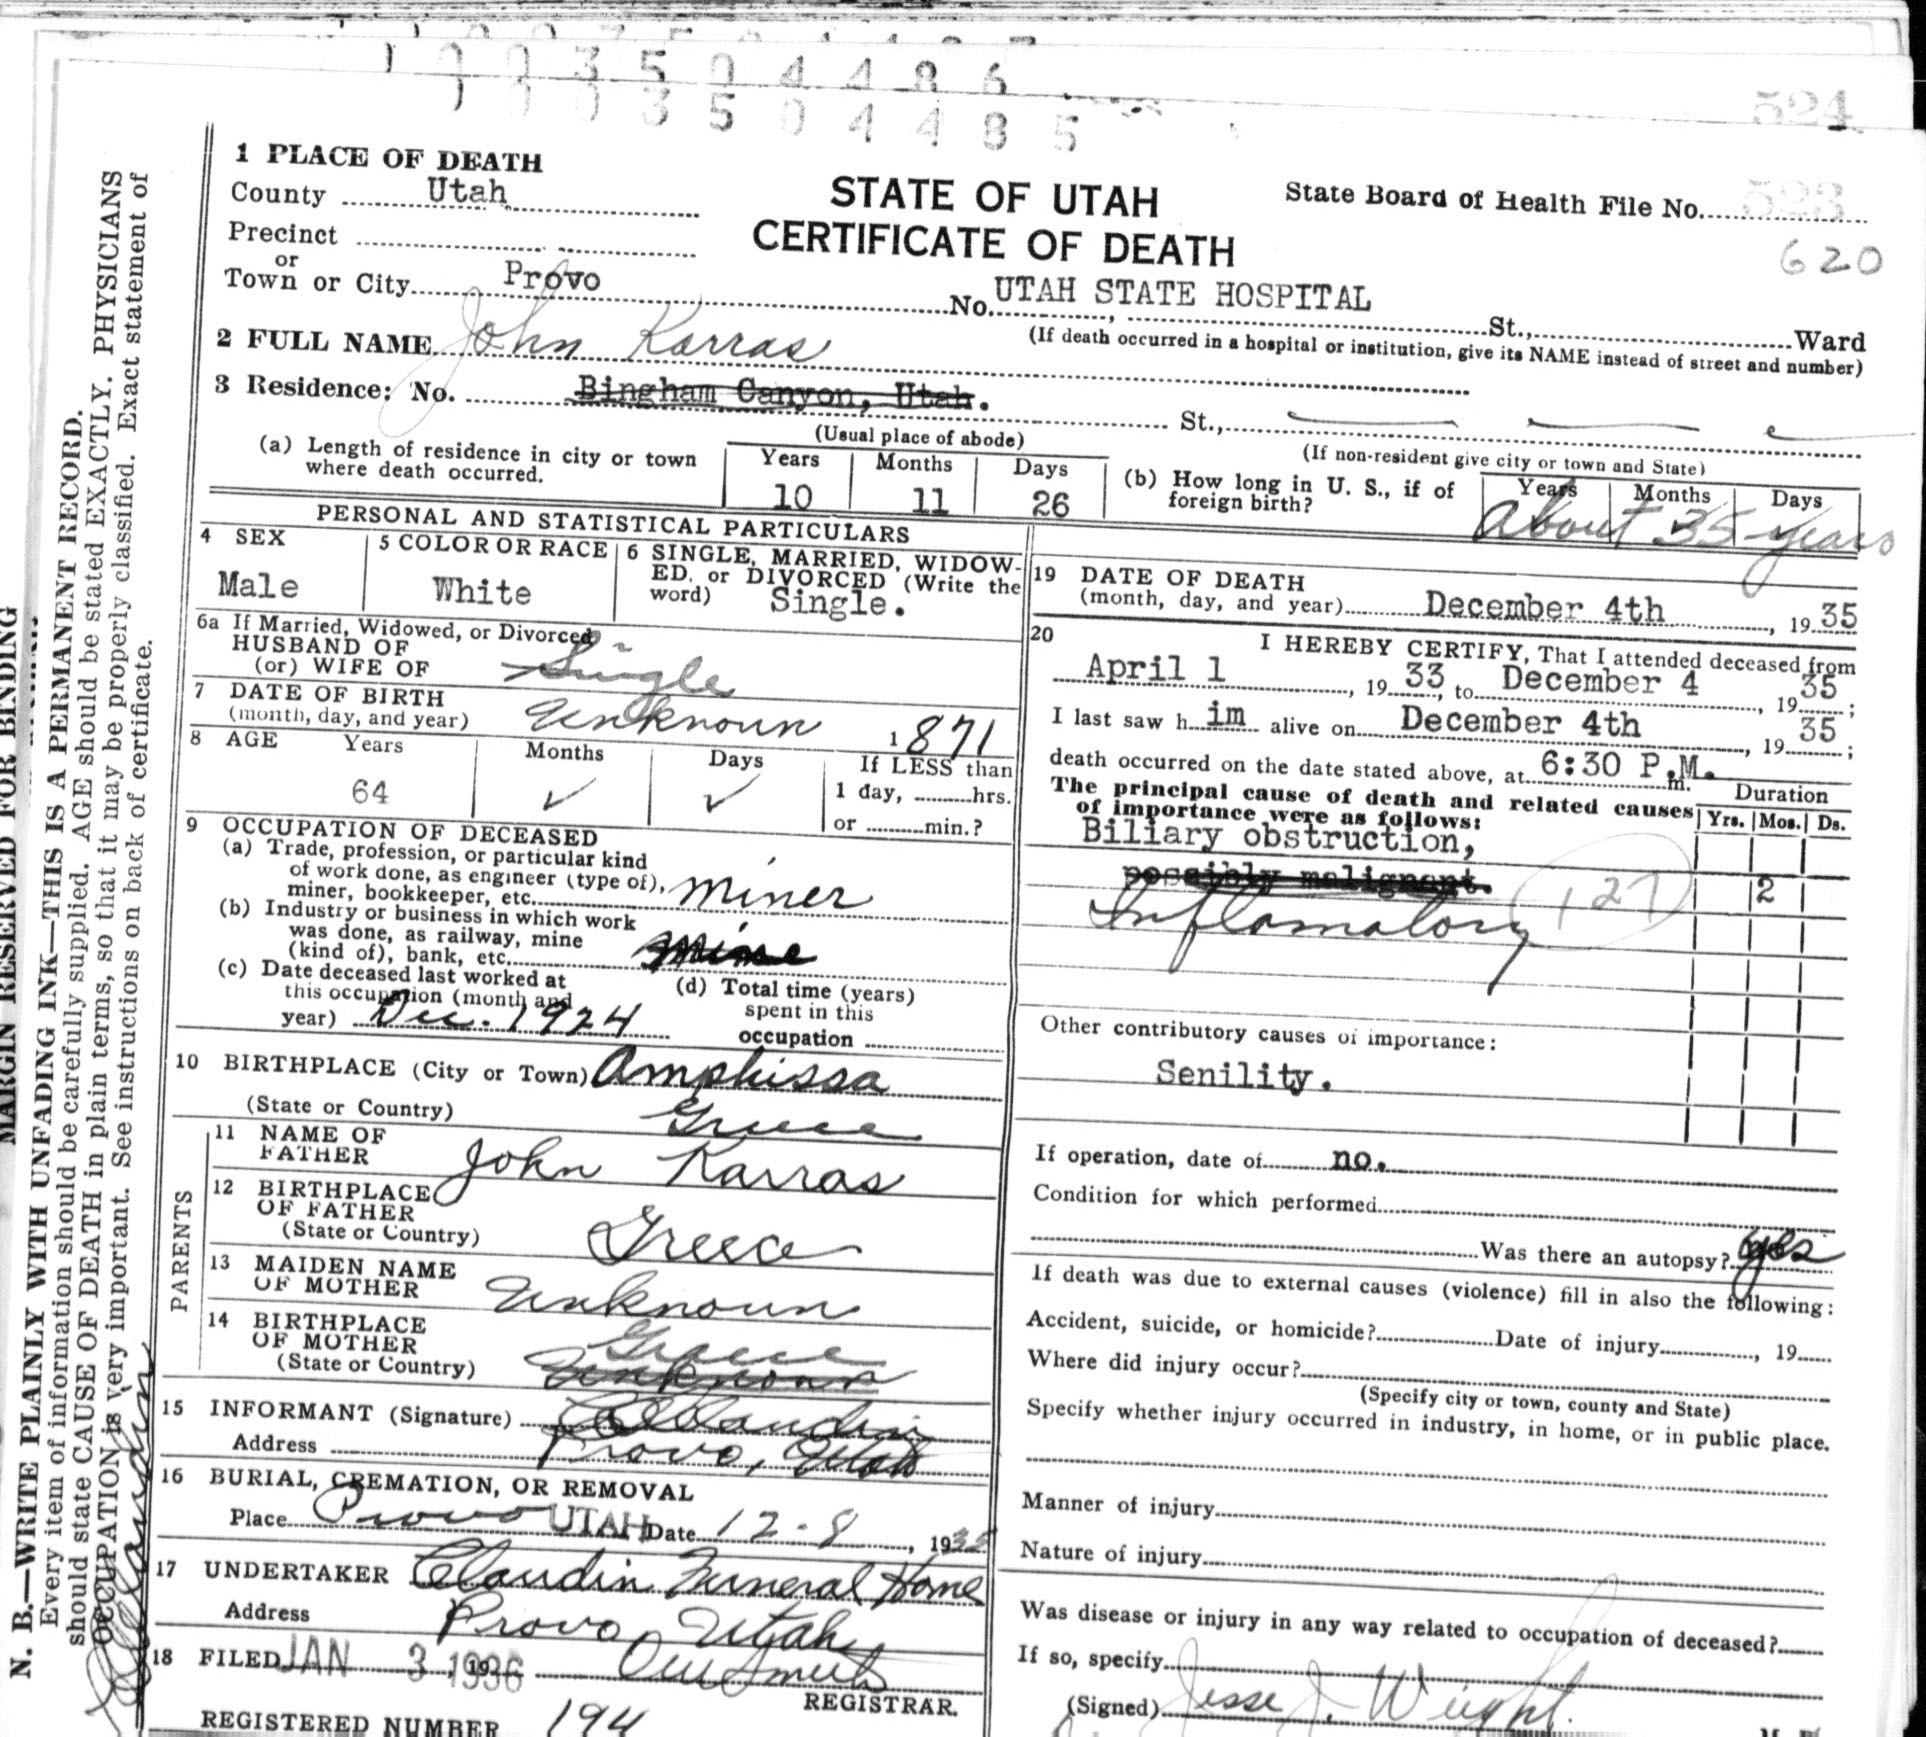 1 0 0 3 5 0 4 4 8 6
1 0 0 3 5 0 4 4 8 5
524
1 PLACE OF DEATH
County Utah
Precinct
or
Town or City Provo
STATE OF UTAH
CERTIFICATE OF DEATH
State Board of Health File No. 523
620
No. UTAH STATE HOSPITAL St., Ward
(If death occurred in a hospital or institution, give its NAME instead of street and number)
2 FULL NAME John Karras
3 Residence: No. Bingham Canyon, Utah. St.,
(Usual place of abode)
(If non-resident give city or town and State)
(a) Length of residence in city or town
where death occurred.
Years Months Days
10 11 26
(b) How long in U. S., if of
foreign birth?
Years Months Days
About 35 years
PERSONAL AND STATISTICAL PARTICULARS
4 SEX
Male
5 COLOR OR RACE
White
6 SINGLE, MARRIED, WIDOW-
ED, or DIVORCED (Write the
word) Single.
6a If Married, Widowed, or Divorced
HUSBAND OF
(or) WIFE OF Single
7 DATE OF BIRTH
(month, day, and year) Unknown 1871
8 AGE Years Months Days If LESS than
64 ✓ ✓ 1 day, hrs.
or min.?
9 OCCUPATION OF DECEASED
(a) Trade, profession, or particular kind
of work done, as engineer (type of),
miner, bookkeeper, etc. miner
(b) Industry or business in which work
was done, as railway, mine
(kind of), bank, etc. Mine
(c) Date deceased last worked at
this occupation (month and
year) Dec. 1924
(d) Total time (years)
spent in this
occupation
10 BIRTHPLACE (City or Town) Amphissa
(State or Country) Greece
PARENTS
11 NAME OF
FATHER John Karras
12 BIRTHPLACE
OF FATHER
(State or Country) Greece
13 MAIDEN NAME
OF MOTHER Unknown
14 BIRTHPLACE
OF MOTHER Greece
(State or Country) Unknown
15 INFORMANT (Signature) Claudin
Address Provo, Utah
16 BURIAL, CREMATION, OR REMOVAL
Place Provo UTAH Date 12-8, 1935
17 UNDERTAKER Claudin Funeral Home
Address Provo Utah
18 FILED JAN 3 1936
REGISTRAR.
REGISTERED NUMBER 194
19 DATE OF DEATH
(month, day, and year) December 4th, 19 35
20 I HEREBY CERTIFY, That I attended deceased from
April 1, 19 33, to December 4, 19 35;
I last saw h im alive on December 4th, 19 35;
death occurred on the date stated above, at 6:30 P.M. m.
The principal cause of death and related causes
of importance were as follows:
Duration
Yrs. Mos. Ds.
Biliary obstruction,
possibly malignant. 2
Inflamatory 127
Other contributory causes of importance:
Senility.
If operation, date of no.
Condition for which performed
Was there an autopsy? yes
If death was due to external causes (violence) fill in also the following:
Accident, suicide, or homicide? Date of injury, 19
Where did injury occur?
(Specify city or town, county and State)
Specify whether injury occurred in industry, in home, or in public place.
Manner of injury
Nature of injury
Was disease or injury in any way related to occupation of deceased?
If so, specify
(Signed) Jesse J. Weight
MARGIN RESERVED FOR BINDING
N. B.—WRITE PLAINLY WITH UNFADING INK—THIS IS A PERMANENT RECORD.
Every item of information should be carefully supplied. AGE should be stated EXACTLY. PHYSICIANS
should state CAUSE OF DEATH in plain terms, so that it may be properly classified. Exact statement of
OCCUPATION is very important. See instructions on back of certificate.